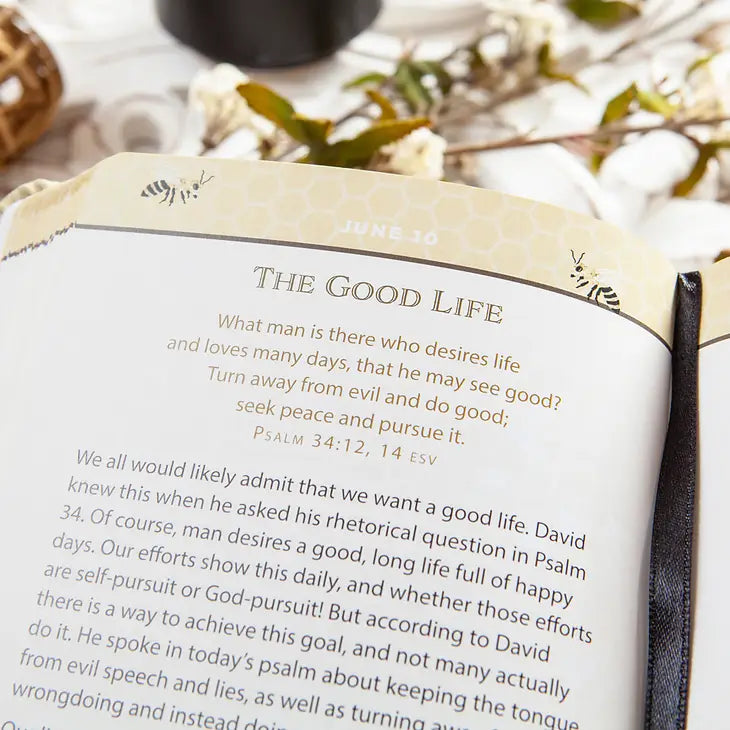 JUNE 16
THE GOOD LIFE
What man is there who desires life
and loves many days, that he may see good?
Turn away from evil and do good;
seek peace and pursue it.
PSALM 34:12, 14 ESV
We all would likely admit that we want a good life. David
knew this when he asked his rhetorical question in Psalm
34. Of course, man desires a good, long life full of happy
days. Our efforts show this daily, and whether those efforts
are self-pursuit or God-pursuit! But according to David
there is a way to achieve this goal, and not many actually
do it. He spoke in today's psalm about keeping the tongue
from evil speech and lies, as well as turning away
wrongdoing and instead